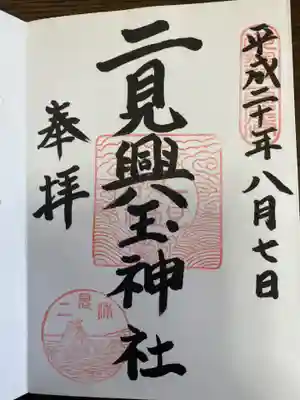 平成二十年八月七日
二見興玉神社
奉拝